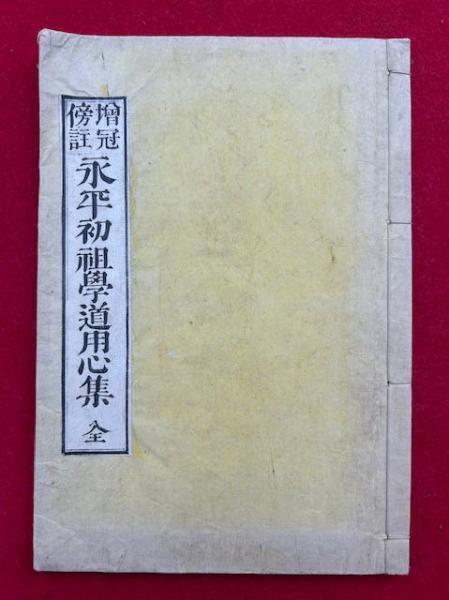 增冠
傍註
永平初祖學道用心集
全